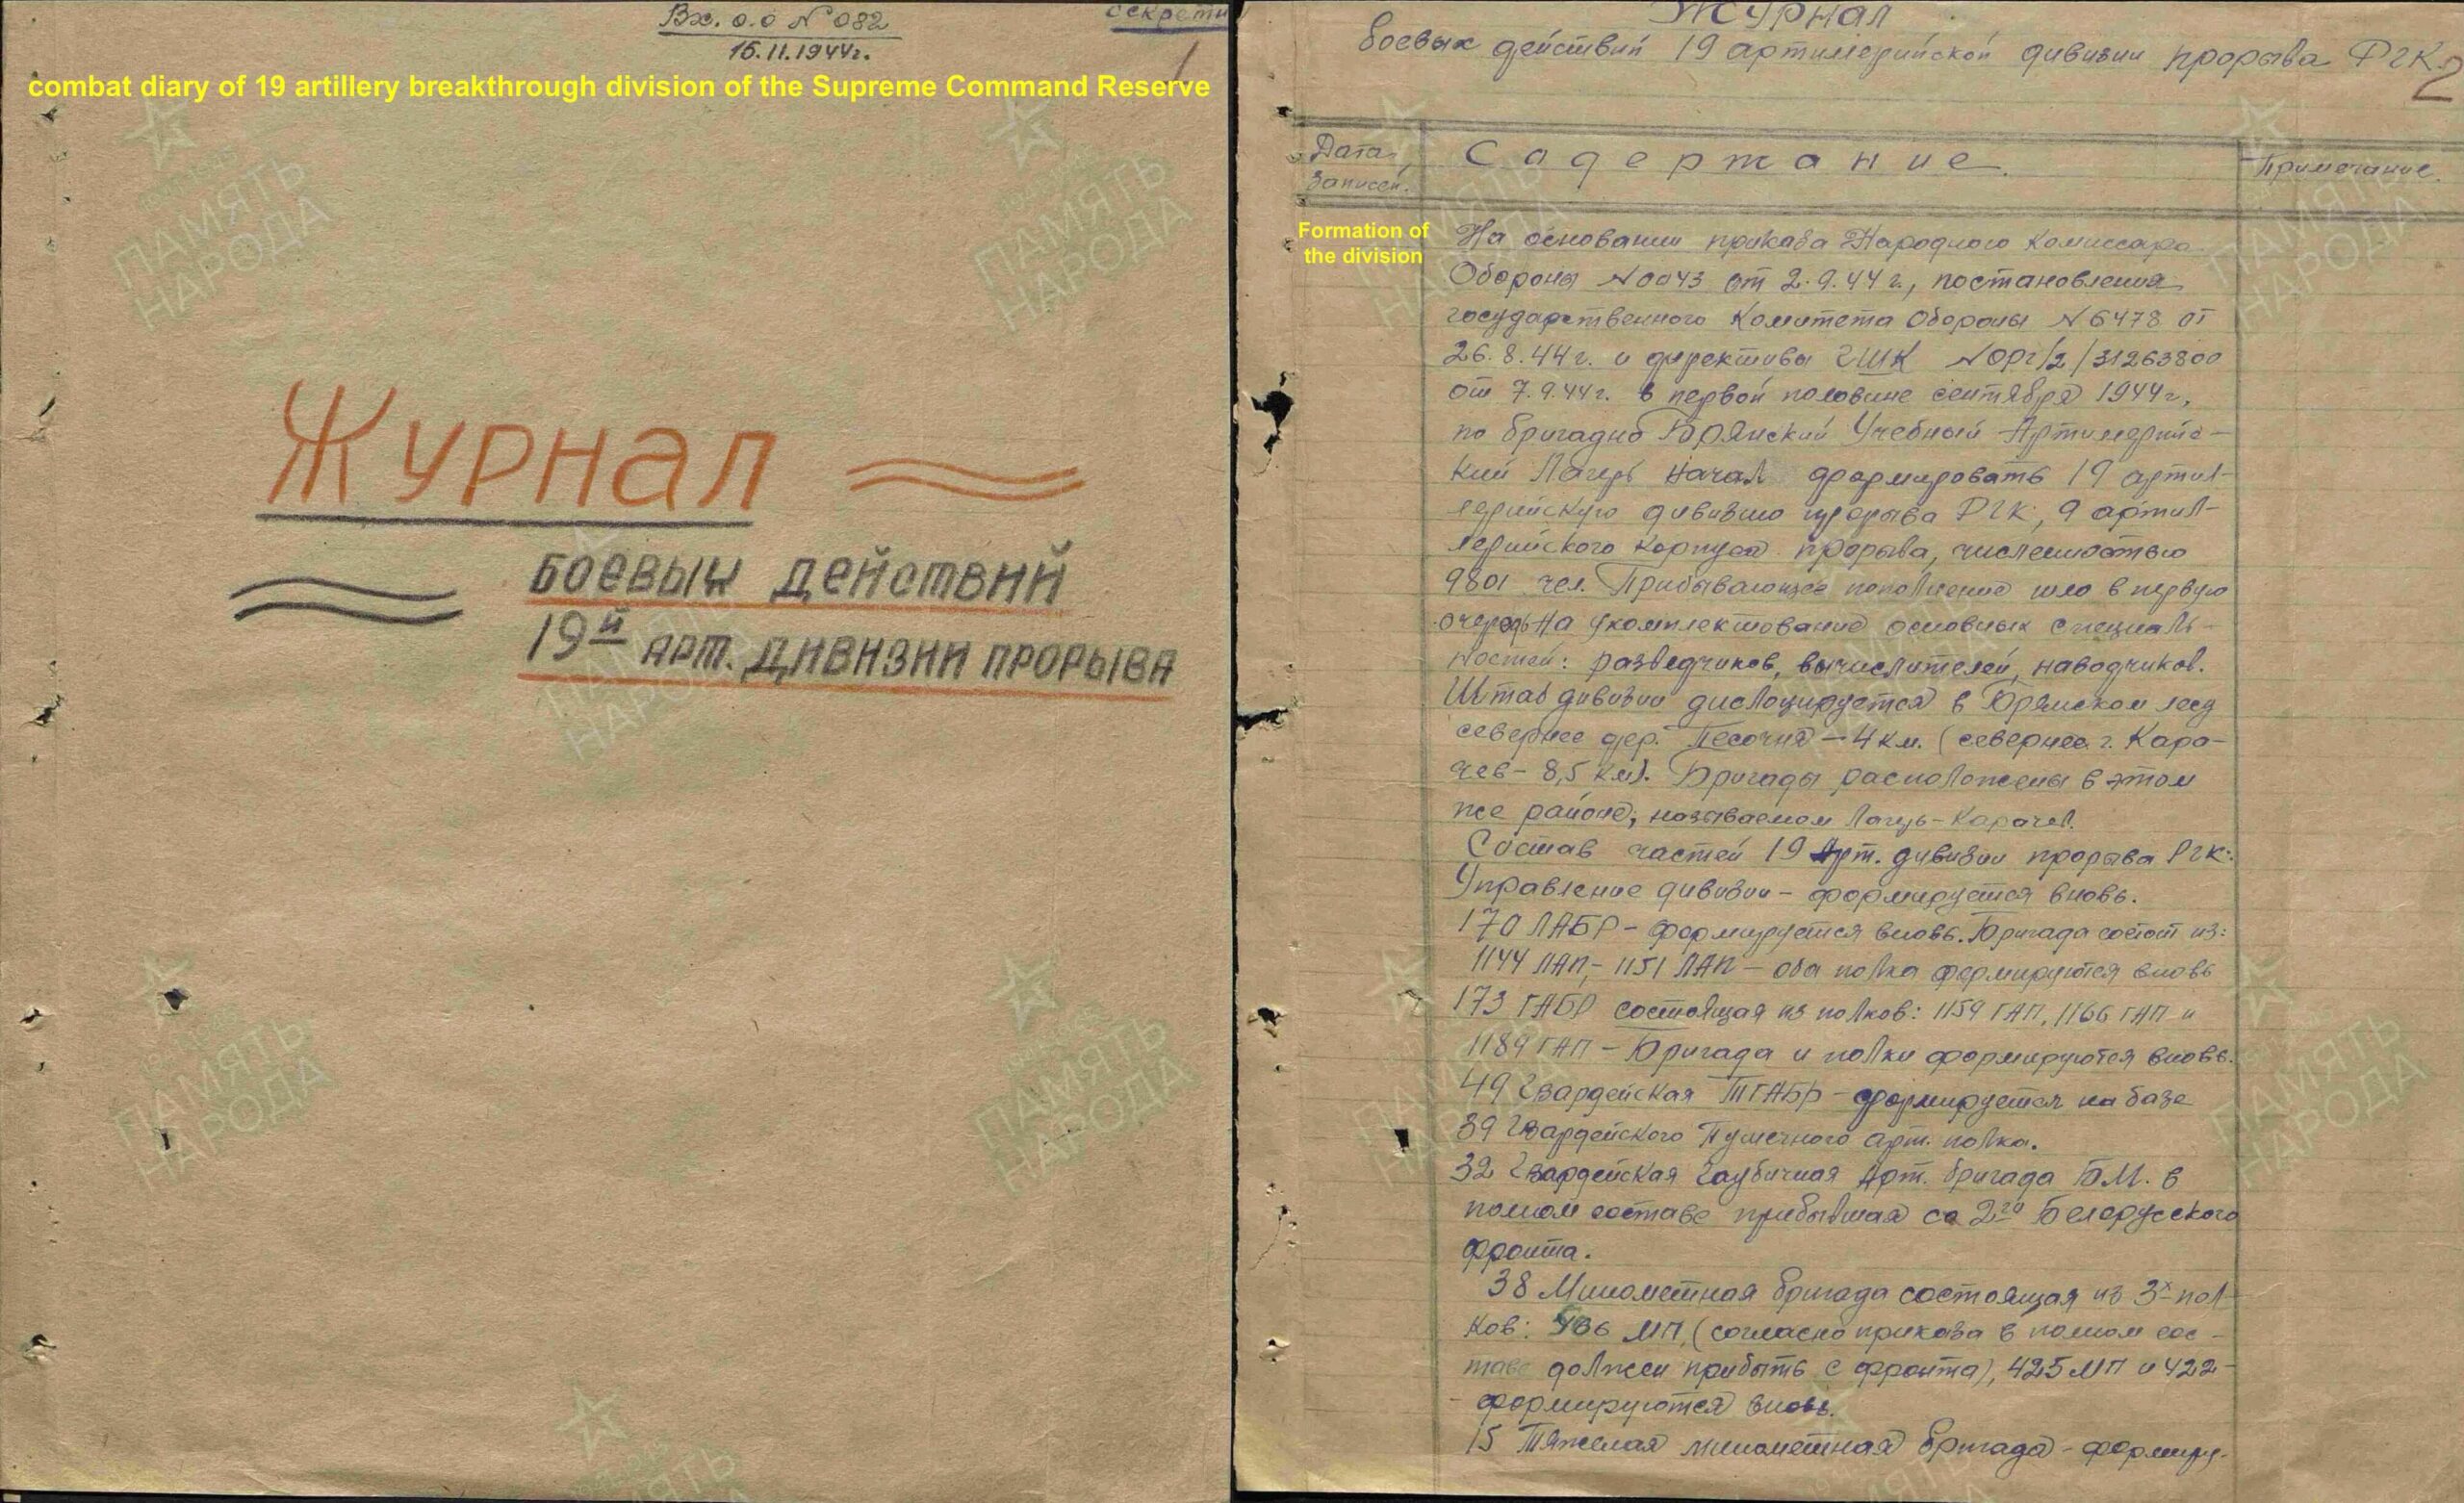 Вх. о.о №082
15.11.1944г.
секретно
1
combat diary of 19 artillery breakthrough division of the Supreme Command Reserve
Журнал
боевых действий
19й арт. дивизии прорыва
Журнал
боевых действий 19 артиллерийской дивизии прорыва РГК.
2
Дата записей.
Содержание.
Примечание.
Formation of
the division
На основании приказа Народного Комиссара
Обороны №0043 от 2.9.44г., постановления
государственного Комитета Обороны №6478 от
26.8.44г. и директивы ГШК №орг/2/31263800
от 7.9.44г. в первой половине сентября 1944г,
по бригадно Брянский Учебный Артиллерийс-
кий Лагерь начал формировать 19 артил-
лерийскую дивизию прорыва РГК, 9 артил-
лерийского корпуса прорыва, численностью
9801 чел. Прибывающее пополнение шло в первую
очередь на укомплектование основных специаль-
ностей: разведчиков, вычислителей, наводчиков.
Штаб дивизии дислоцируется в Брянском лесу
севернее дер. Песочня – 4 км. (севернее г. Кара-
чев – 8,5 км). Бригады расположены в этом
же районе, называемом Лагерь-Карачев.
Состав частей 19 Арт. дивизии прорыва РГК:
Управление дивизии – формируется вновь.
170 ЛАБР – формируется вновь. Бригада состоит из:
1144 ЛАП, – 1151 ЛАП – оба полка формируются вновь
173 ГАБР состоящая из полков: 1159 ГАП, 1166 ГАП и
1189 ГАП – Бригада и полки формируются вновь.
49 Гвардейская ТГАБр – формируется на базе
39 Гвардейского Пушечного арт. полка.
32 Гвардейская Гаубичная Арт. бригада Б.М. в
полном составе прибывшая со 2го Белорусского
фронта.
38 Минометная бригада состоящая из 3х пол-
ков: МП, (согласно приказа в полном сос-
таве должен прибыть с фронта), 425 МП и 422
- формируются вновь.
15 Тяжелая минометная бригада – формиру-
ПАМЯТЬ
НАРОДА